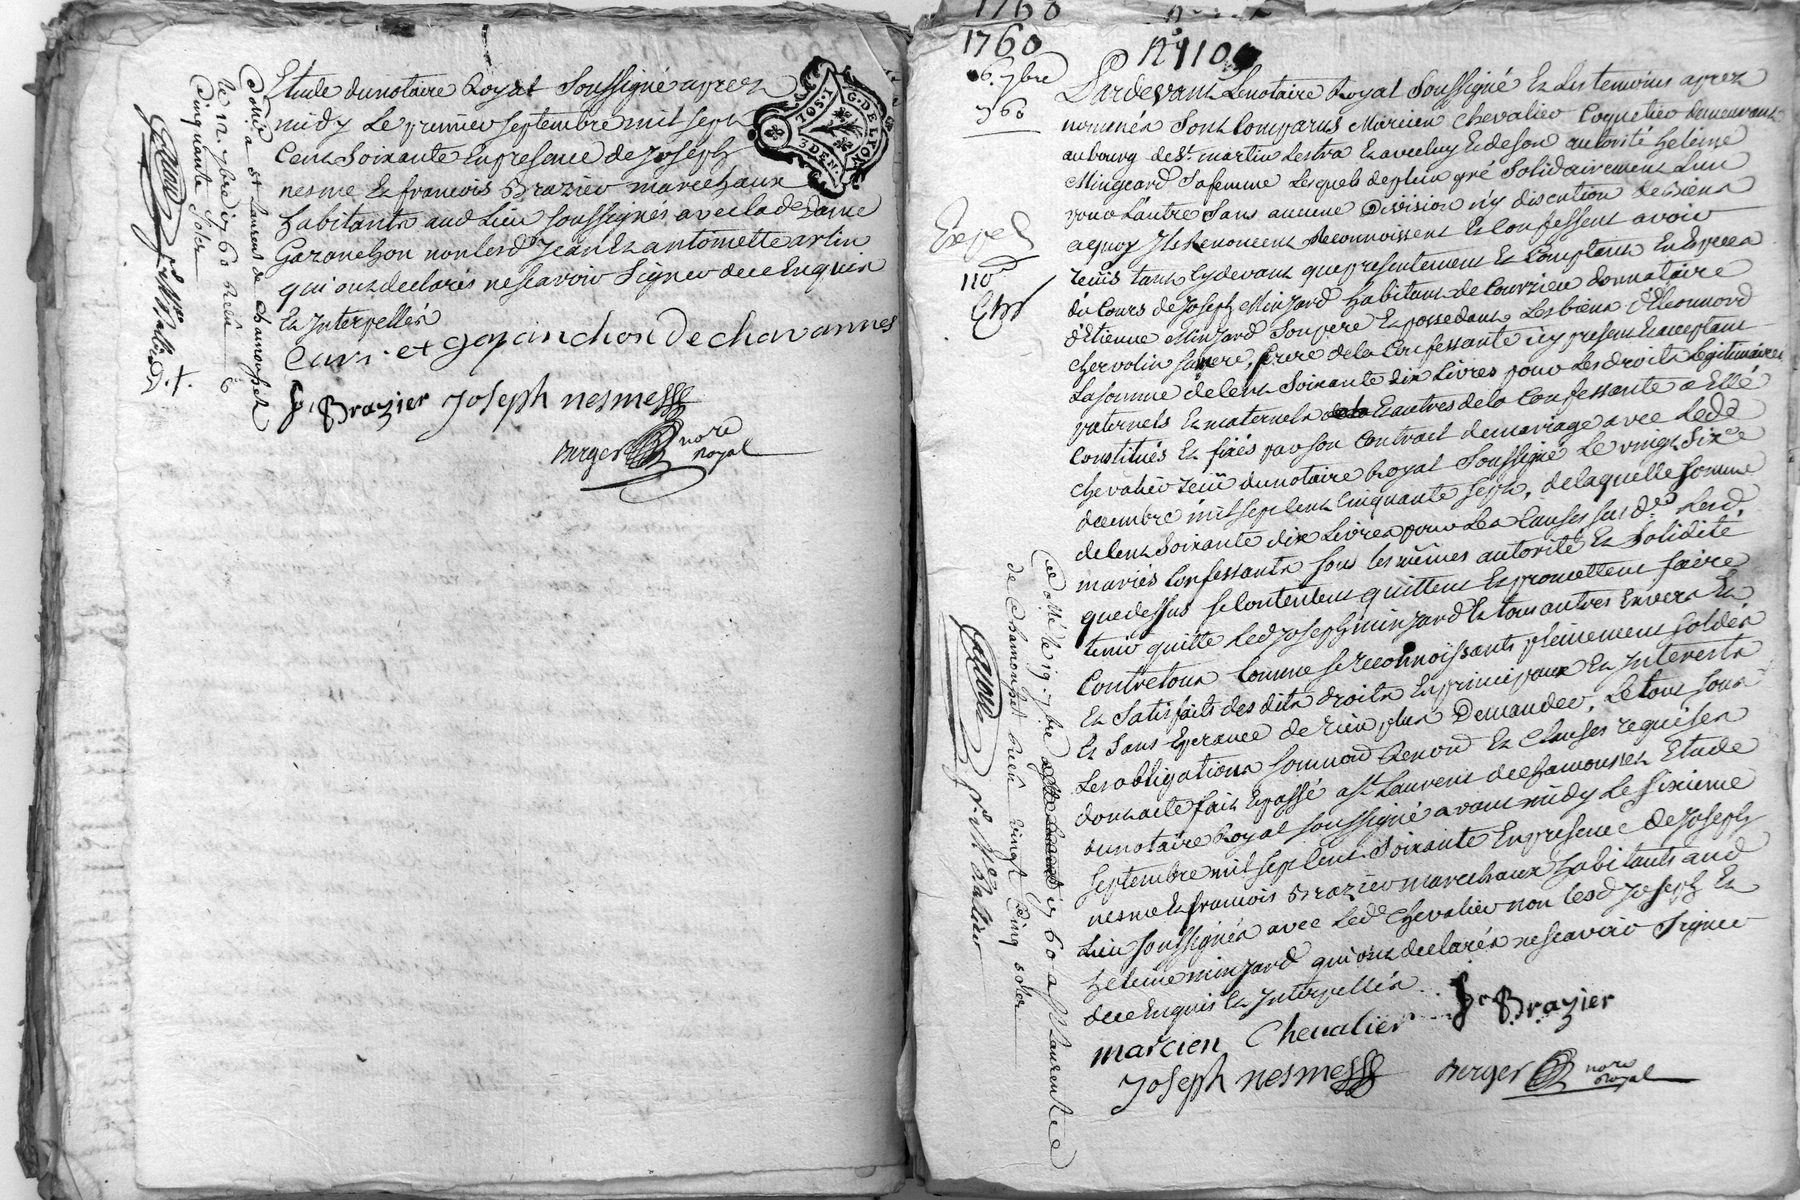 Etude du notaire Royal Soussigné aprez
midy Le premier septembre mil sept
Cent Soixante En presence de Joseph
nesme Et francois Brazier marechaux
habitants aud Lieu soussignés avec lade Dame
Gazanchon non lesd Jean Et antoinette arlin
qui ont declarés ne scavoir Signer de ce Enquis
Et Interpellés
Curis et gazanchon De chavannes
fr Brazier Joseph nesme
Berger nore
Royal
G. DE LYON
1 OS. 1
3 DEN.
Collé a st Laurent de chamousset
le 12 7bre 1760 Recu
Cinquante Sols
1760
1760
6 7bre
1760
N 110
Expel
110
Pardevant Le notaire Royal Soussigné Et Les temoins aprez
nommés Sont Comparus Marcien Chevalier Coquetier demeurant
au bourg de St martin Lestra Et avec luy Et de son autorité heleine
Mingeard Sa femme Lesquels de plein gré Solidairement L'un
pour L'autre Sans aucune Division n'y discution de Biens
aquoy Ils Renoncent Reconnoissent Et Confessent avoir
reçüs tant Cydevant que presentement Et Comptant En Especes
du Cours de Joseph Minjard habitant de Courzieu donnataire
d'Etienne Minjard Son pere Et possedant Les biens d'Eleonnord
chervolin sa mere, frere de la Confessante icy present Et acceptant
La somme de Cent Soixante dix Livres pour Les droits Legitimaires
paternels Et maternels Et autres de la Confessante a Ellé
Constitués Et fixés par son Contrait de mariage avec Led
Chevalier reçü du notaire Royal Soussigné Le vingt Sixe
decembre mil sept Cent Cinquante Sept, de laquelle somme
de Cent Soixante dix Livres pour Les Causes sus des Lesd
mariés Confessants sous les mêmes autorité Et Solidité
que dessus se Contentent quittent Et promettent faire
tenir quitte Led Joseph minjard Et tous autres Envers Et
Contre tous Comme se reconnoissants pleinement Soldés
Et Satisfaits des dits droits En principaux Et Interests
Et Sans Esperance de rien plus Demander, Le tout sous
Les obligations soumond Renond Et Clauses requises
dont acte fait Et passé a St Laurent de Chamousset Etude
du notaire Royal soussigné avant midy Le sixieme
septembre mil sept Cent Soixante En presence de Joseph
nesme Et francois Brazier marechaux habitants aud
Lieu soussignés avec Led Chevalier non lesd Joseph Et
heleine minjard qui ont declarés ne scavoir signer
de ce Enquis Et Interpellés
marcien Chevalier fr Brazier
Joseph nesme Berger nore
Royal
Collé le 19 7bre 1760 a St Laurent
de Chamousset Recu vingt Cinq sols